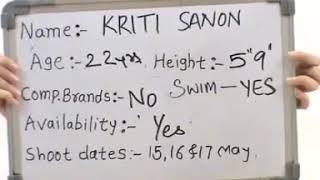 Name:- KRITI SANON
Age:- 22yrs Height:- 5"9'
Comp.Brands:- No SWIM - YES
Availability:- Yes
Shoot dates:- 15,16 & 17 May.